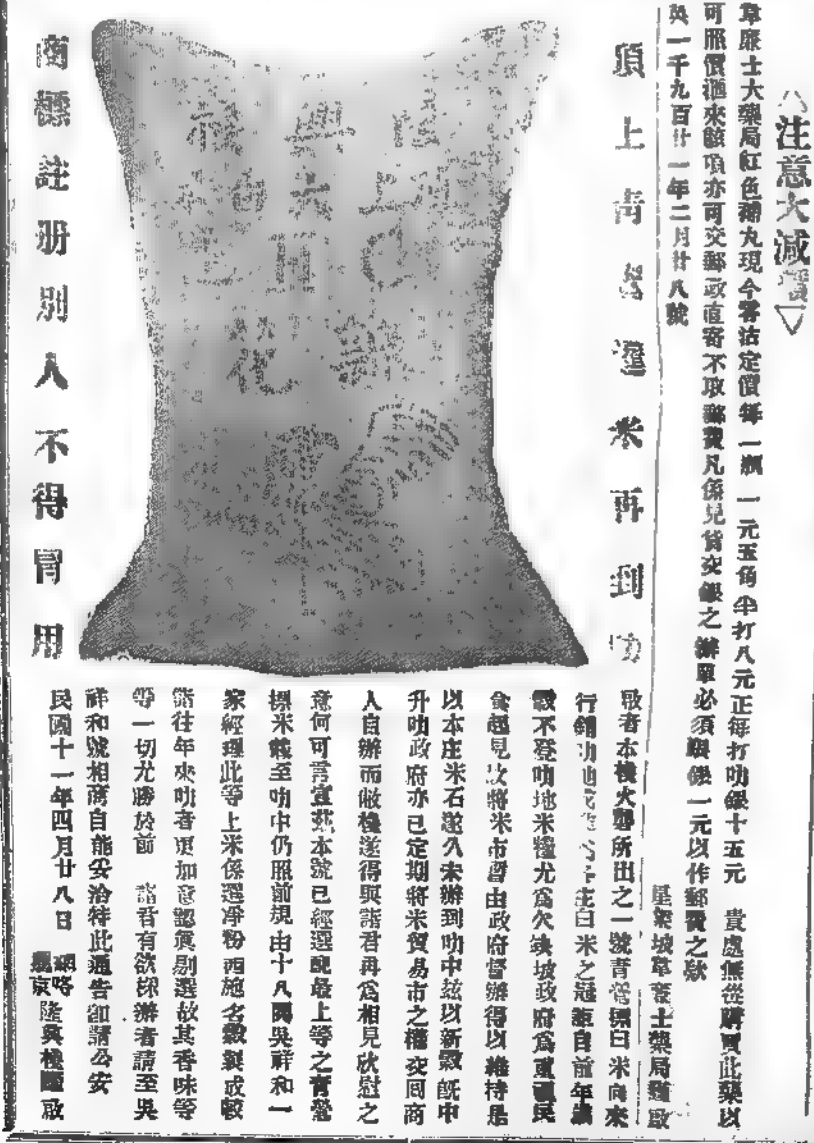 注意大減價
韋廉士大藥局紅色補丸現今零沽定價每一瓶一元五角半打八元正每打叻銀十五元 貴處無從購買此藥以
可照價滙來該項亦可交郵政直寄不取郵費凡係見貨交銀之辦單必須與銀一元以作郵費之欵
英一千九百廿一年二月廿八號
星架坡韋廉士藥局謹啟
頂上青鶯選米再到叻
商標註册別人不得冒用
啟者本棧火礱所出之一號青鶯標白米向來
行銷叻地 白米之冠 自前年
穀不登叻地米糧尤為欠缺坡政府為重視民
食起見故將米市暫由政府督辦得以維持是
以本庄米石遂久未辦到叻中茲以新穀既中
升叻政府亦已定期將米貿易市之權交囘商
人自辦而敝棧遂得與諸君再為相見欣慰之
意何可言宣茲本號已經選配最上等之青鶯
標米載至叻中仍照前規由十八間吳祥和一
家經理此等上米係選净粉西施名穀製成較
諸往年來叻者更加意認真剔選故其香味等
等一切尤勝於前 諸君有欲採辦者請至吳
祥和號相商自能妥洽特此通告卽請公安
民國十一年四月廿八日
暹京 隆興棧謹啟